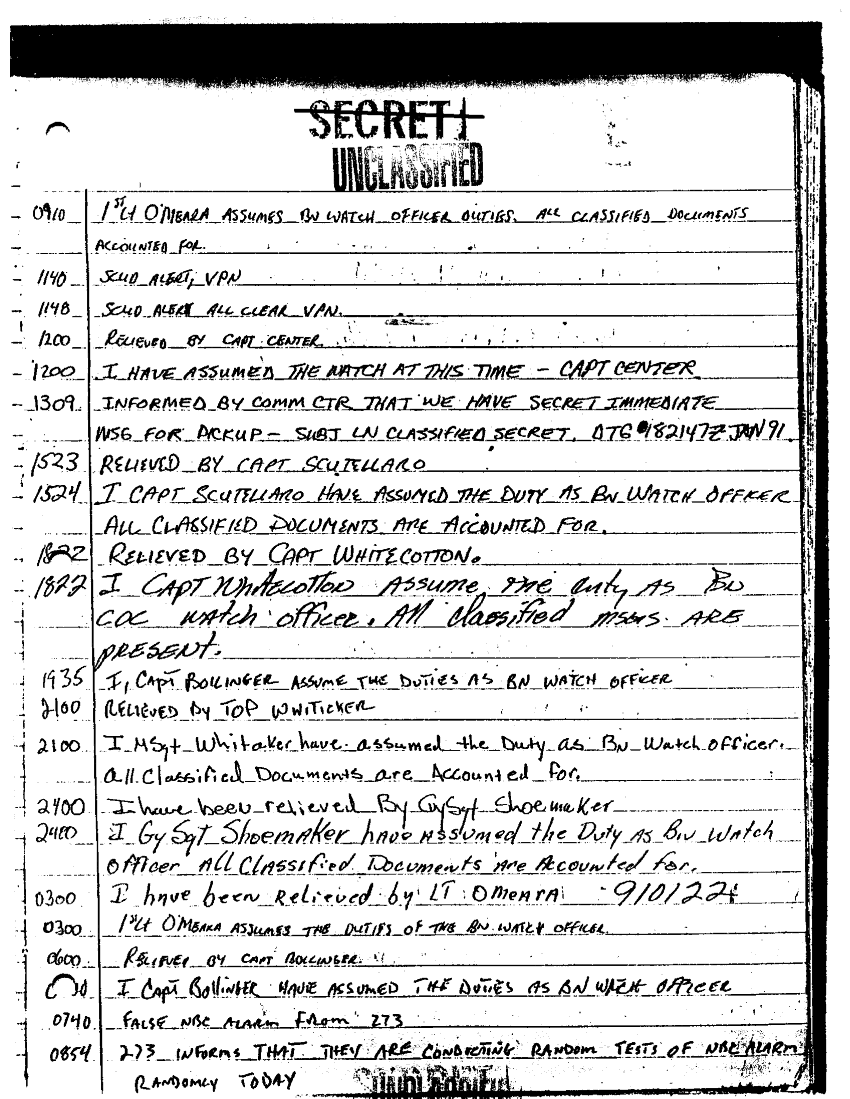 SECRET
UNCLASSIFIED
0910 1ST Lt O'MEARA ASSUMES BN WATCH OFFICER DUTIES. ALL CLASSIFIED DOCUMENTS
ACCOUNTED FOR.
1140 SCUD ALERT, VPN
1148 SCUD ALERT ALL CLEAR VPN.
1200 RELIEVED BY CAPT CENTER
1200 I HAVE ASSUMED THE WATCH AT THIS TIME - CAPT CENTER
1309 INFORMED BY COMM CTR THAT WE HAVE SECRET IMMEDIATE
MSG FOR PICKUP - SUBJ LN CLASSIFIED SECRET. DTG 182147Z JAN 91.
1523 RELIEVED BY CAPT SCUTELLARO
1524 I CAPT SCUTELLARO HAVE ASSUMED THE DUTY AS BN WATCH OFFICER
ALL CLASSIFIED DOCUMENTS ARE ACCOUNTED FOR.
1822 RELIEVED BY CAPT WHITECOTTON.
1822 I CAPT Whitecotton ASSUME the duty AS BN
COC watch officer. All classified msgs ARE
PRESENT.
1935 I, CAPT BOLLINGER ASSUME THE DUTIES AS BN WATCH OFFICER
2100 RELIEVED BY TOP WHITICKER
2100 I MSgt Whitaker have assumed the Duty as BN Watch officer.
all Classified Documents are Accounted for.
2400 I have been relieved By GySgt Shoemaker
2400 I GySgt Shoemaker have Assumed the Duty As BN Watch
Officer All Classified Documents Are Accounted for.
0300 I have been Relieved by LT OMEARA 910122
0300 1st Lt O'MEARA ASSUMES THE DUTIES OF THE BN WATCH OFFICER.
0600 RELIEVED BY CAPT BOLLINGER.
I CAPT BOLLINGER HAVE ASSUMED THE DUTIES AS BN WATCH OFFICER
0740 FALSE NBC ALARM FROM 273
0854 273 INFORMS THAT THEY ARE CONDUCTING RANDOM TESTS OF NBC ALARM
RANDOMLY TODAY